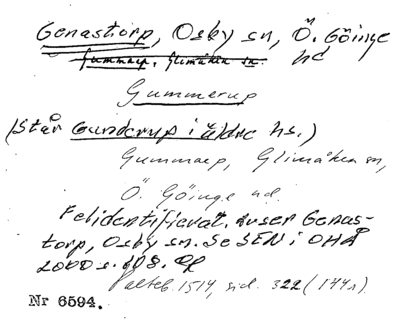 Genastorp, Osby sn, Ö. Göinge
Gummarp, Glimåkra sn. hd
Gummerup
(Står Gunderup i äldre hs.)
Gummarp, Glimåkra sn,
Ö. Göinge hd.
Felidentifierat. Avser Genas-
torp, Osby sn. Se SEN i OHÅ
2000 s. 108.
1514, sid. 322 (144 )
Nr 6594.